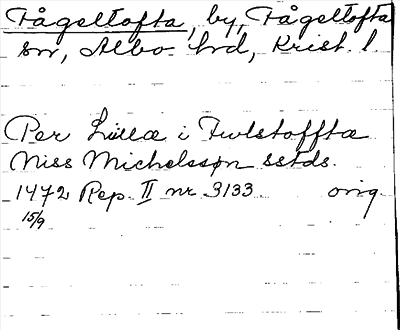 Fågeltofta, by, Fågeltofta
sn, Albo hrd, Krist. l
Per Lillæ i Fwlstofftæ
Niss Michelsson sstds.
1472 Rep. II nr 3133. orig.
15/9